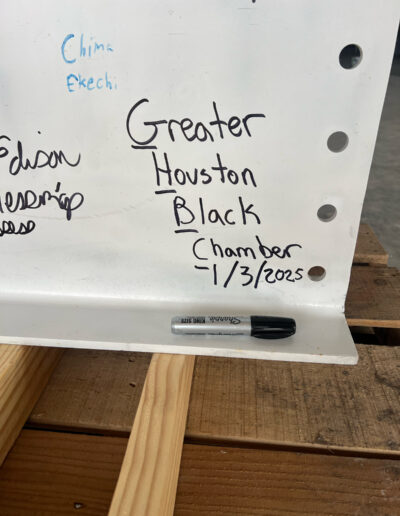 China
Ekechi
Edison
Greater
Houston
Black
Chamber
1/3/2025
Sharpie
KING SIZE